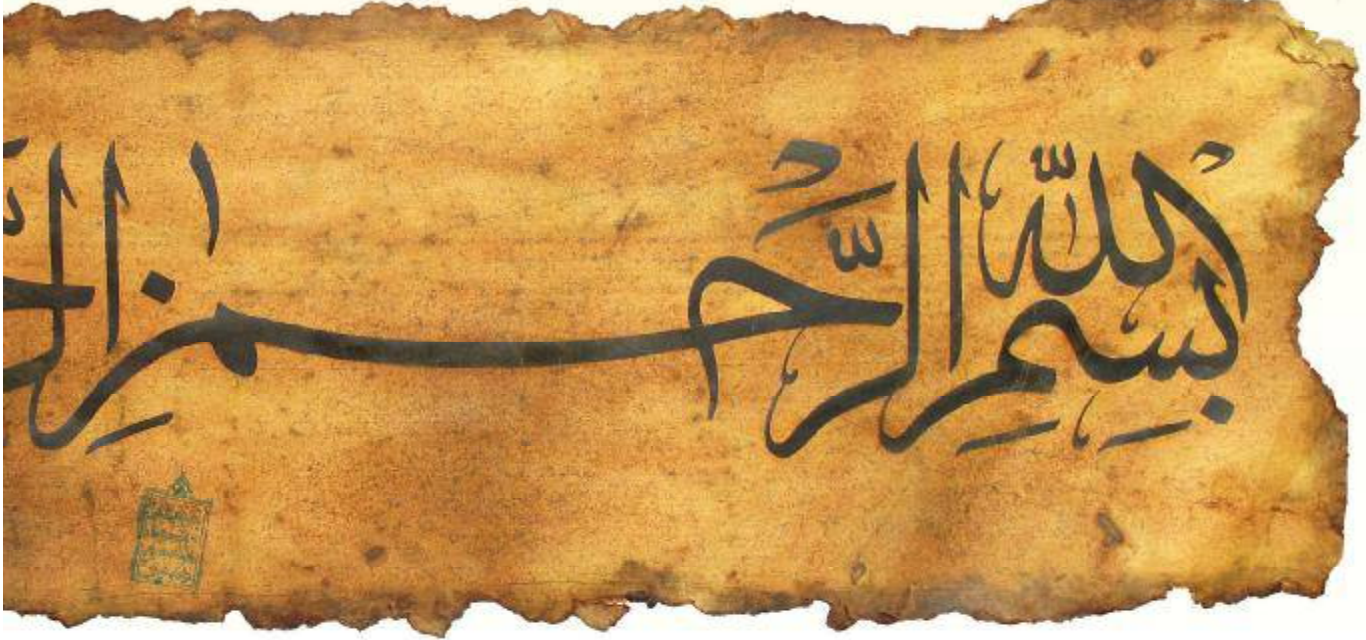 بِسْمِ اللّٰه الرَّحْمٰنِ